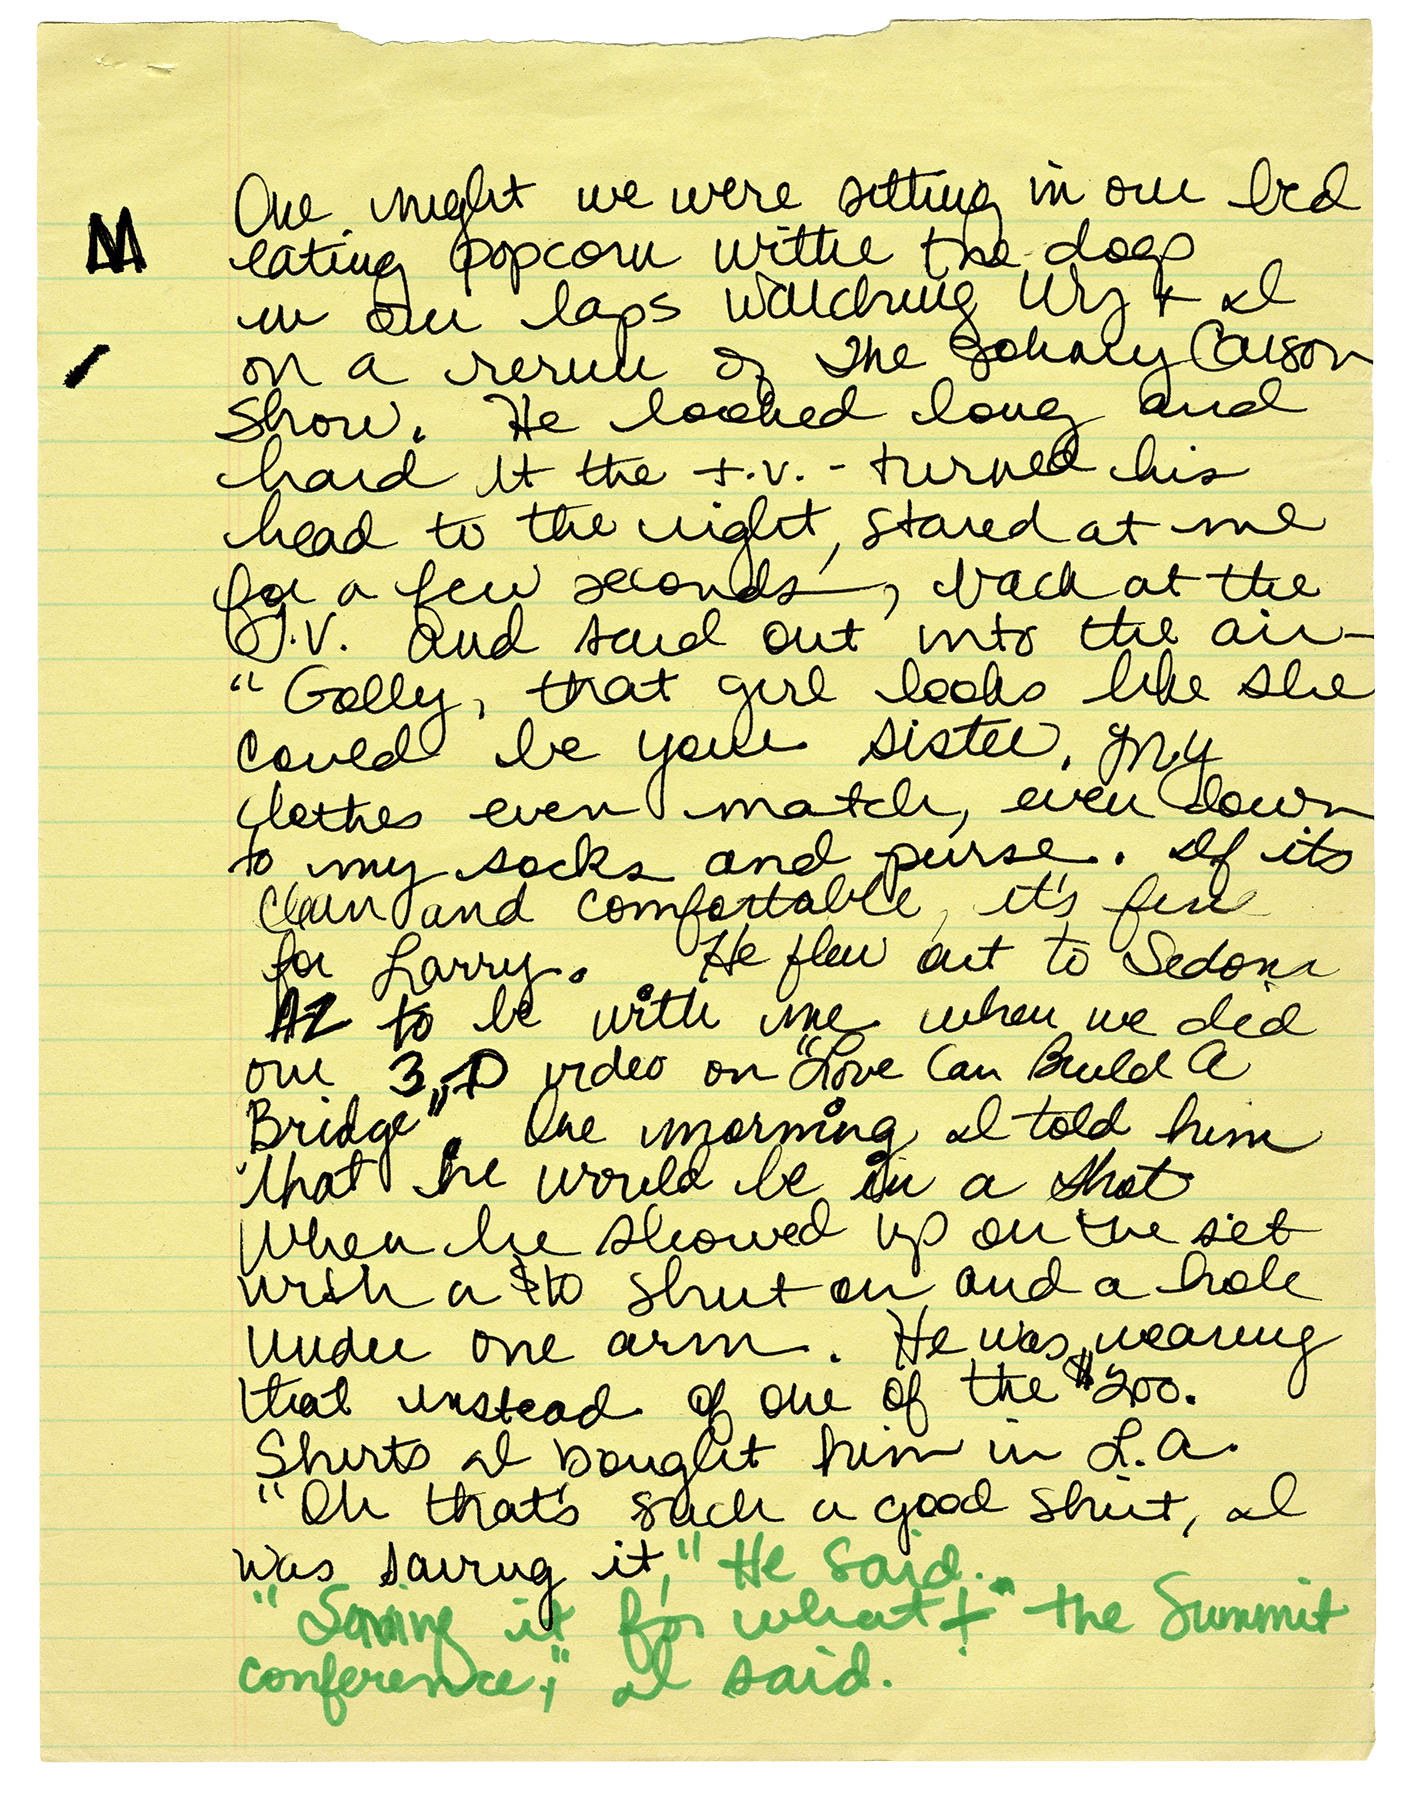 M
One night we were sitting in our bed
eating popcorn withe the dogs
in our laps watching Wy + I
on a rerun of The Johnny Carson
Show. He looked long and
hard at the t.v. - turned his
head to the right, stared at me
for a few seconds -, back at the
T.V. and said out into the air -
"Golly, that girl looks like she
could be your sister. My
clothes even match, even down
to my socks and purse. If its
clean and comfortable, it's fine
for Larry. He flew out to Sedona
AZ to be with me when we did
our 3-D video on "Love Can Build A
Bridge". One morning I told him
that he would be in a shot
When he showed up on the set
with a $10 shirt on and a hole
under one arm. He was wearing
that instead of one of the $200.
Shirts I bought him in L.A.
"Oh that's such a good shirt, I
was saving it," He said.
"Saving it for what!" the Summit
conference," I said.